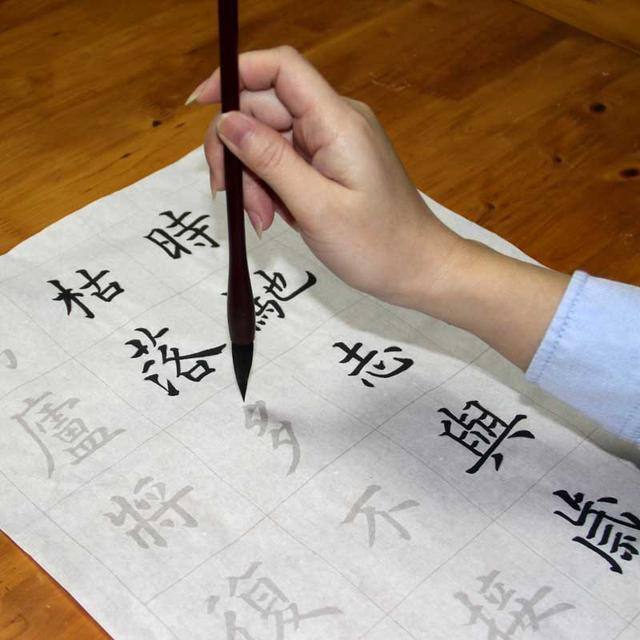 時馳志與歲
枯落多不接
廬將復